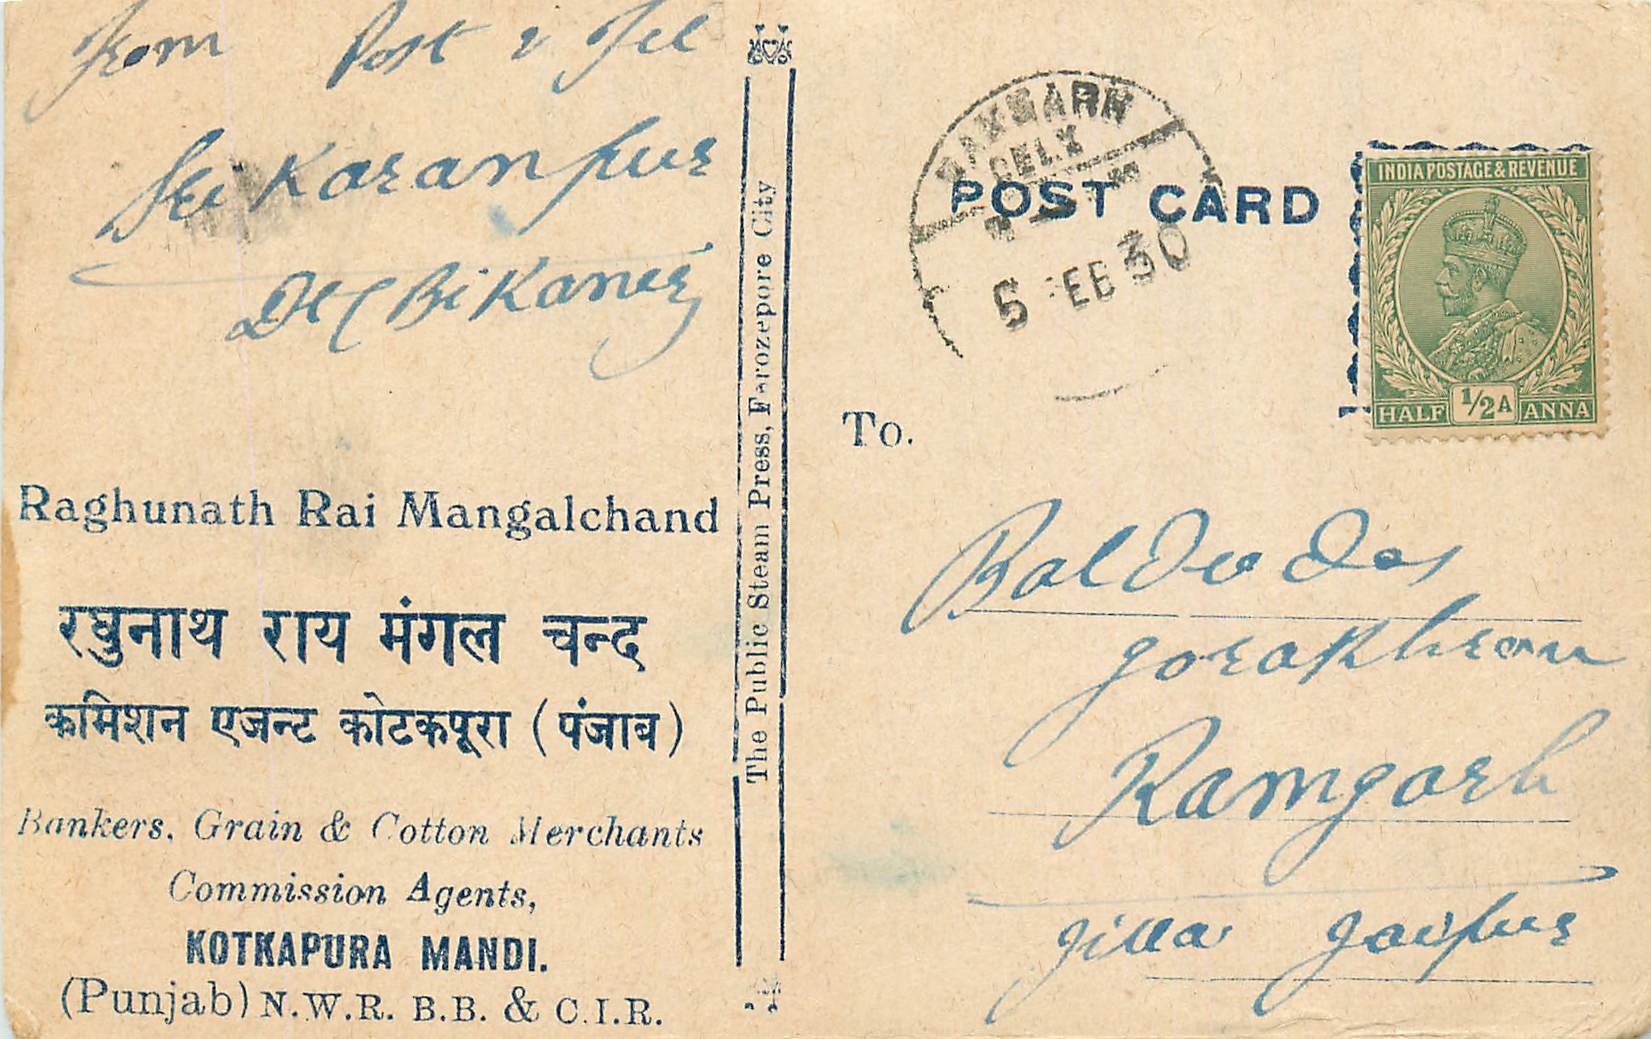 From Post & Tel
Sri Karanpur
Dtt Bikaner
Raghunath Rai Mangalchand
रघुनाथ राय मंगल चन्द
कमिशन एजन्ट कोटकपूरा (पंजाब)
Bankers, Grain & Cotton Merchants
Commission Agents,
KOTKAPURA MANDI.
(Punjab) N.W.R. B.B. & C.I.R.
The Public Steam Press, Ferozepore City
POST CARD
5 FEB 30
INDIA POSTAGE & REVENUE
HALF 1/2 A ANNA
To.
Baldeo Das
Gorakhram
Ramgarh
Jilla Jaipur